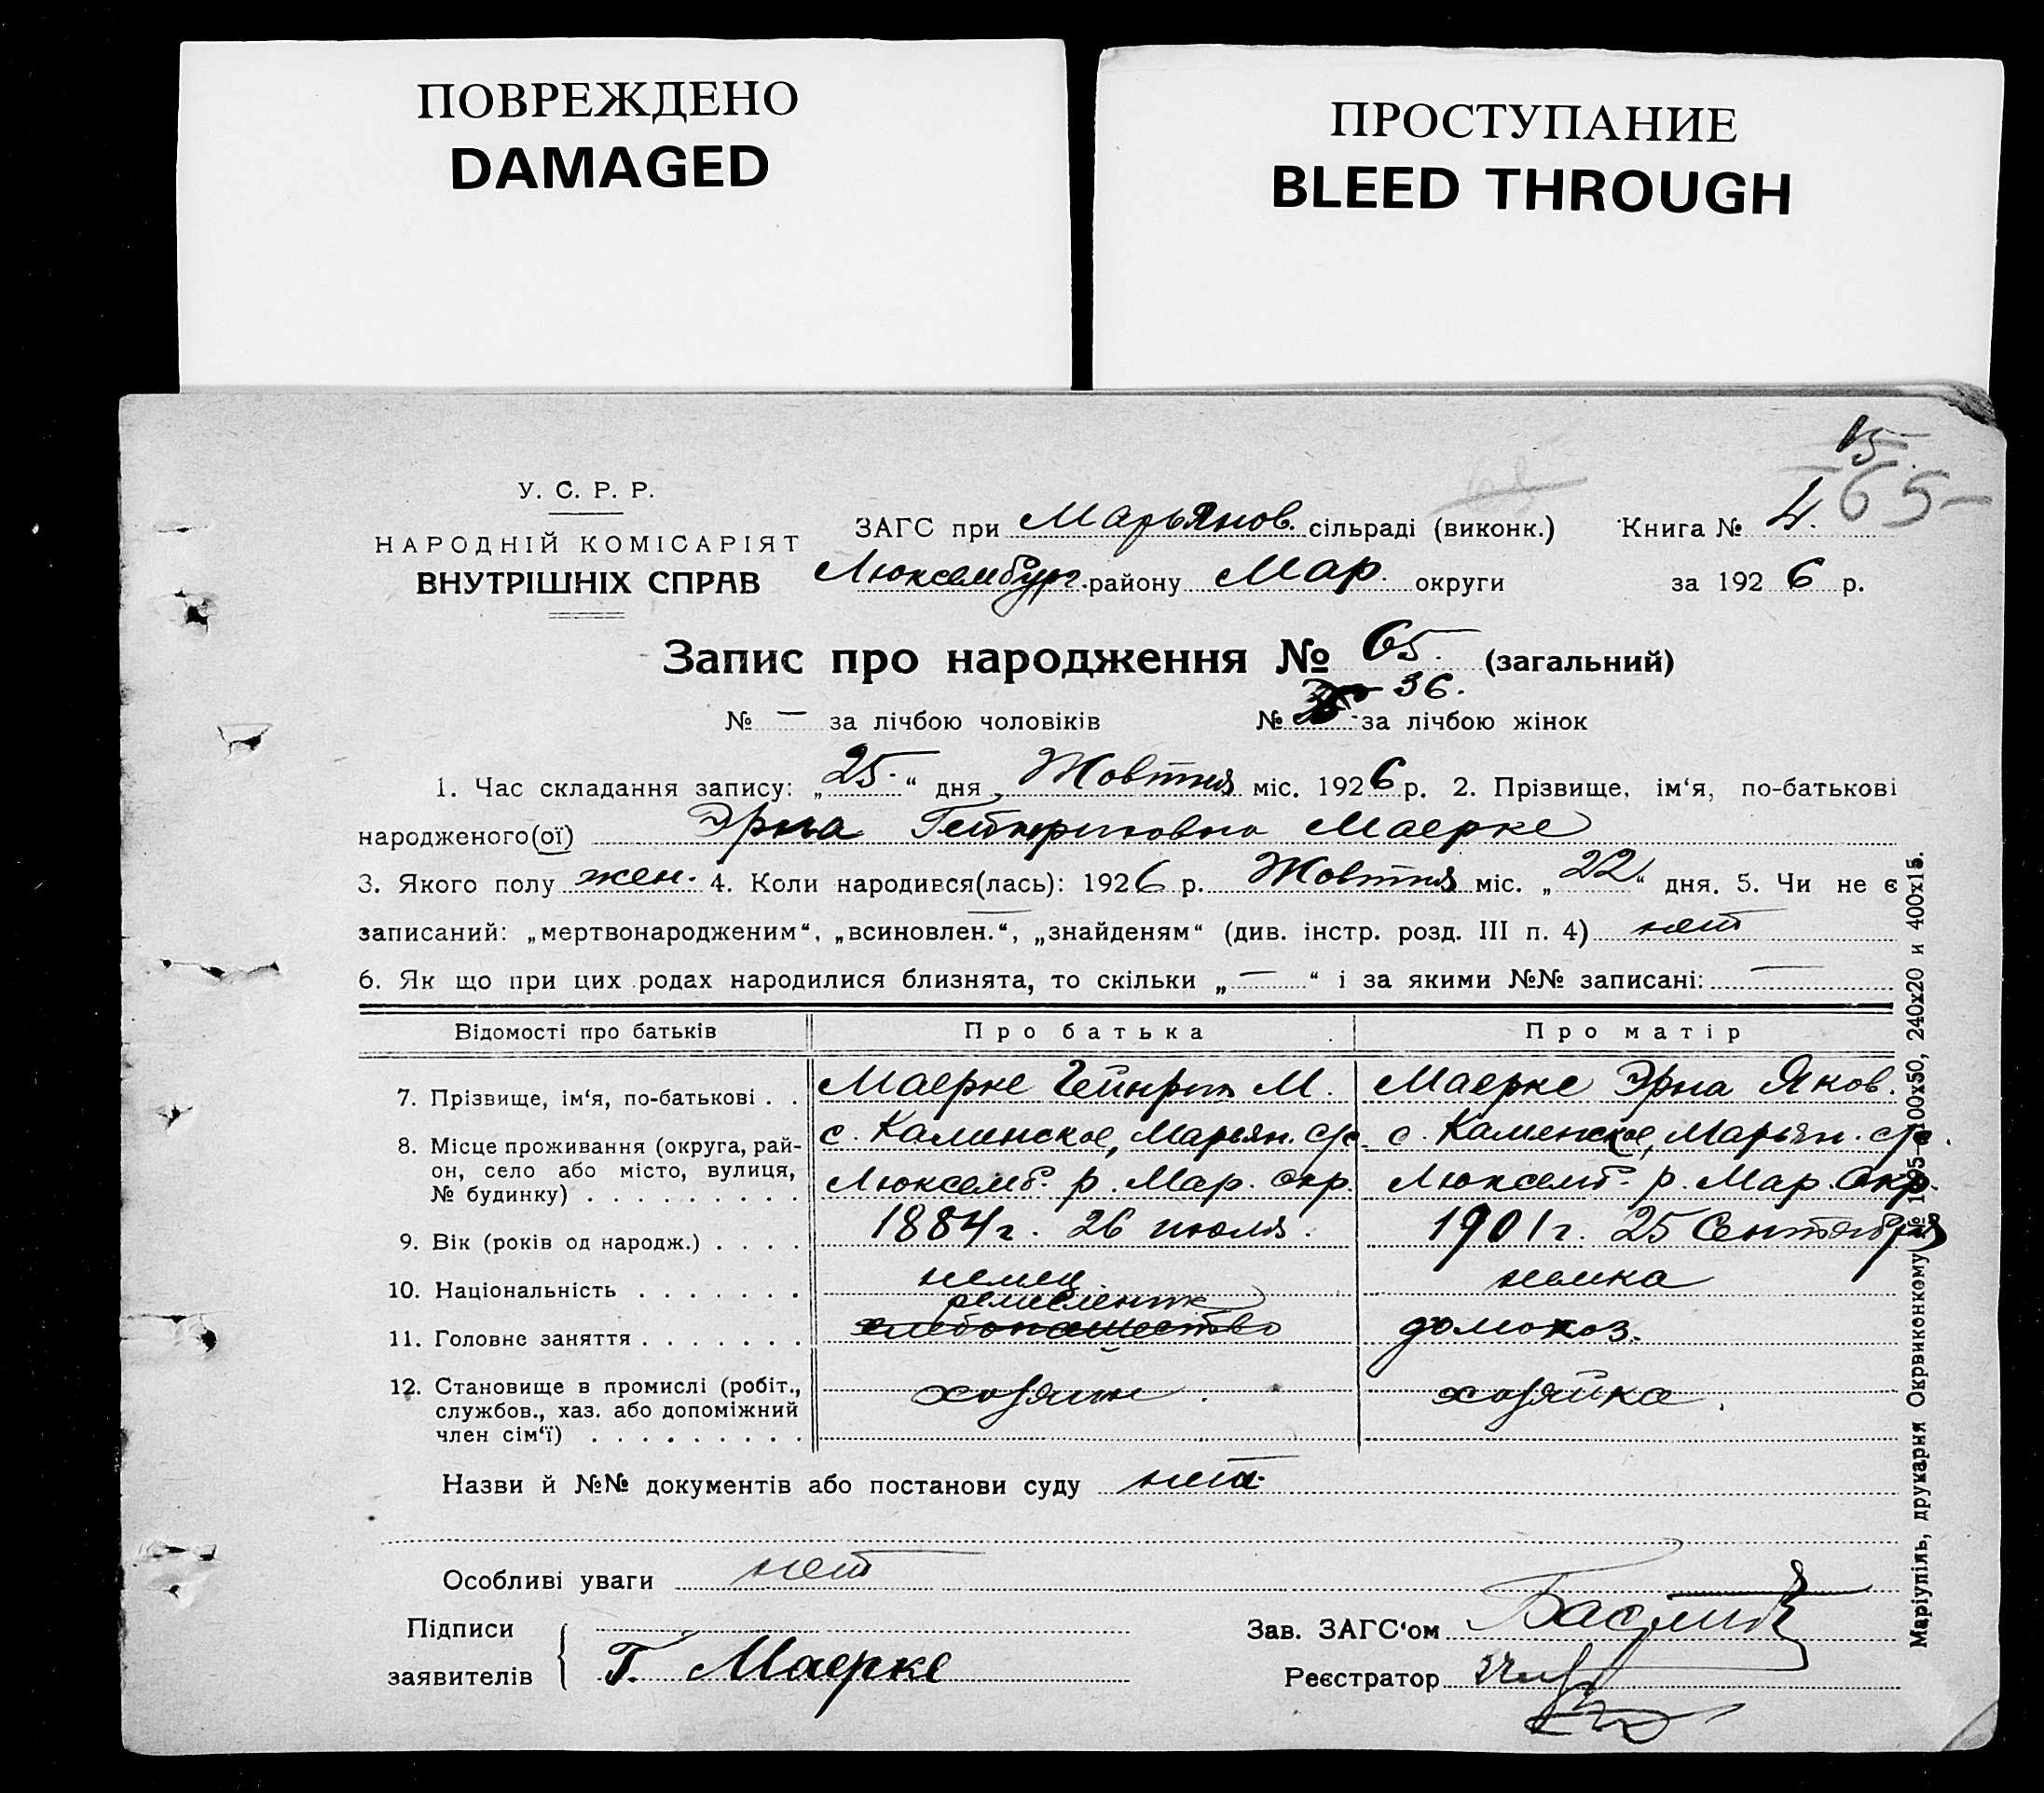 ПОВРЕЖДЕНО
DAMAGED
ПРОСТУПАНИЕ
BLEED THROUGH
15.
65
65
У. С. Р. Р.
НАРОДНІЙ КОМІСАРІЯТ
ВНУТРІШНІХ СПРАВ
ЗАГС при Марьянов. сільраді (виконк.) Книга № 4.
Люксембург. району Мар. округи за 1926 р.
Запис про народження № 65. (загальний)
36.
№ — за лічбою чоловіків № за лічбою жінок
1. Час складання запису: „25.“ дня Жовтня міс. 1926 р. 2. Прізвище, ім‘я, по-батькові
народженого(ої) Эрна Гейнриховна Маерке
3. Якого полу жен. 4. Коли народився(лась): 1926 р. Жовтня міс. „22“ дня. 5. Чи не є
записаний: „мертвонародженим“, „всиновлен.“, „знайденям“ (див. інстр. розд. III п. 4) нет
6. Як що при цих родах народилися близнята, то скільки „—“ і за якими №№ записані: —
Відомості про батьків Про батька Про матір
7. Прізвище, ім‘я, по-батькові . . Маерке Гейнрих М. Маерке Эрна Яков.
8. Місце проживання (округа, рай-
он, село або місто, вулиця,
№ будинку) . . . . . . . . .
с. Каминское, Марьян. с/с с. Каменское, Марьян. с/с.
Люксемб. р. Мар. Окр. Люксемб. р. Мар. Окр.
9. Вік (років од народж.) . . . . 1884 г. 26 июля. 1901 г. 25 Сентября
10. Національність . . . . . . . немец. немка
ремесленик
11. Головне заняття . . . . . . . хлебопашество домохоз.
12. Становище в промислі (робіт.,
службов., хаз. або допоміжний
член сім‘ї) . . . . . . . . .
хозяин. хозяйка.
Назви й №№ документів або постанови суду нет.
Особливі уваги нет
Підписи
заявителів
Г. Маерке
Зав. ЗАГС‘ом
Реєстратор
Маріупіль, друкарня Окрвиконкому № 1695—100х50, 240х20 и 400х15.